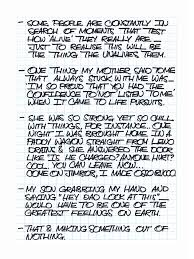 - SOME PEOPLE ARE CONSTANTLY IN
SEARCH OF MOMENTS THAT TEST
HOW ALIVE THEY REALLY ARE
JUST TO REALISE THIS WILL BE
THE THING THE UNALIVES THEM.
- ONE THING MY MOTHER SAID TO ME
THAT ALWAYS STUCK WITH ME WAS...
I'M SO PROUD THAT YOU HAD THE
CONFIDENCE TO NOT LISTEN TO ME
WHEN IT CAME TO LIFE PURSUITS.
- SHE WAS SO STRONG YET SO CHILL
WITH THINGS, FOR INSTANCE... ONE
NIGHT I WAS BROUGHT HOME IN A
PADDY WAGON STRAIGHT FROM LEWD
DRAINS & SHE ANSWERED THE DOOR
LIKE 'IS HE CHARGED? ANYONE HURT?
COOL YOU CAN LEAVE NOW...
COME ON JIMBOB, I MADE
- MY SON GRABBING MY HAND AND
SAYING "HEY DAD LOOK AT THIS"
WOULD HAVE TO BE ONE OF THE
GREATEST FEELINGS ON EARTH.
- THAT & MAKING SOMETHING OUT OF
NOTHING.